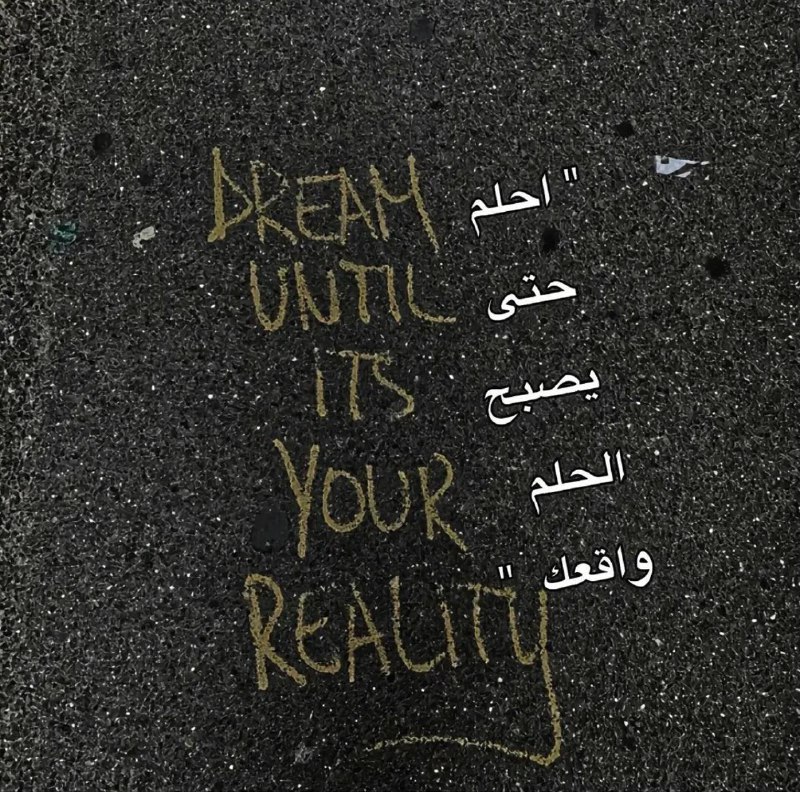 DREAM
UNTIL
ITS
YOUR
REALITY
" احلم
حتى
يصبح
الحلم
واقعك "